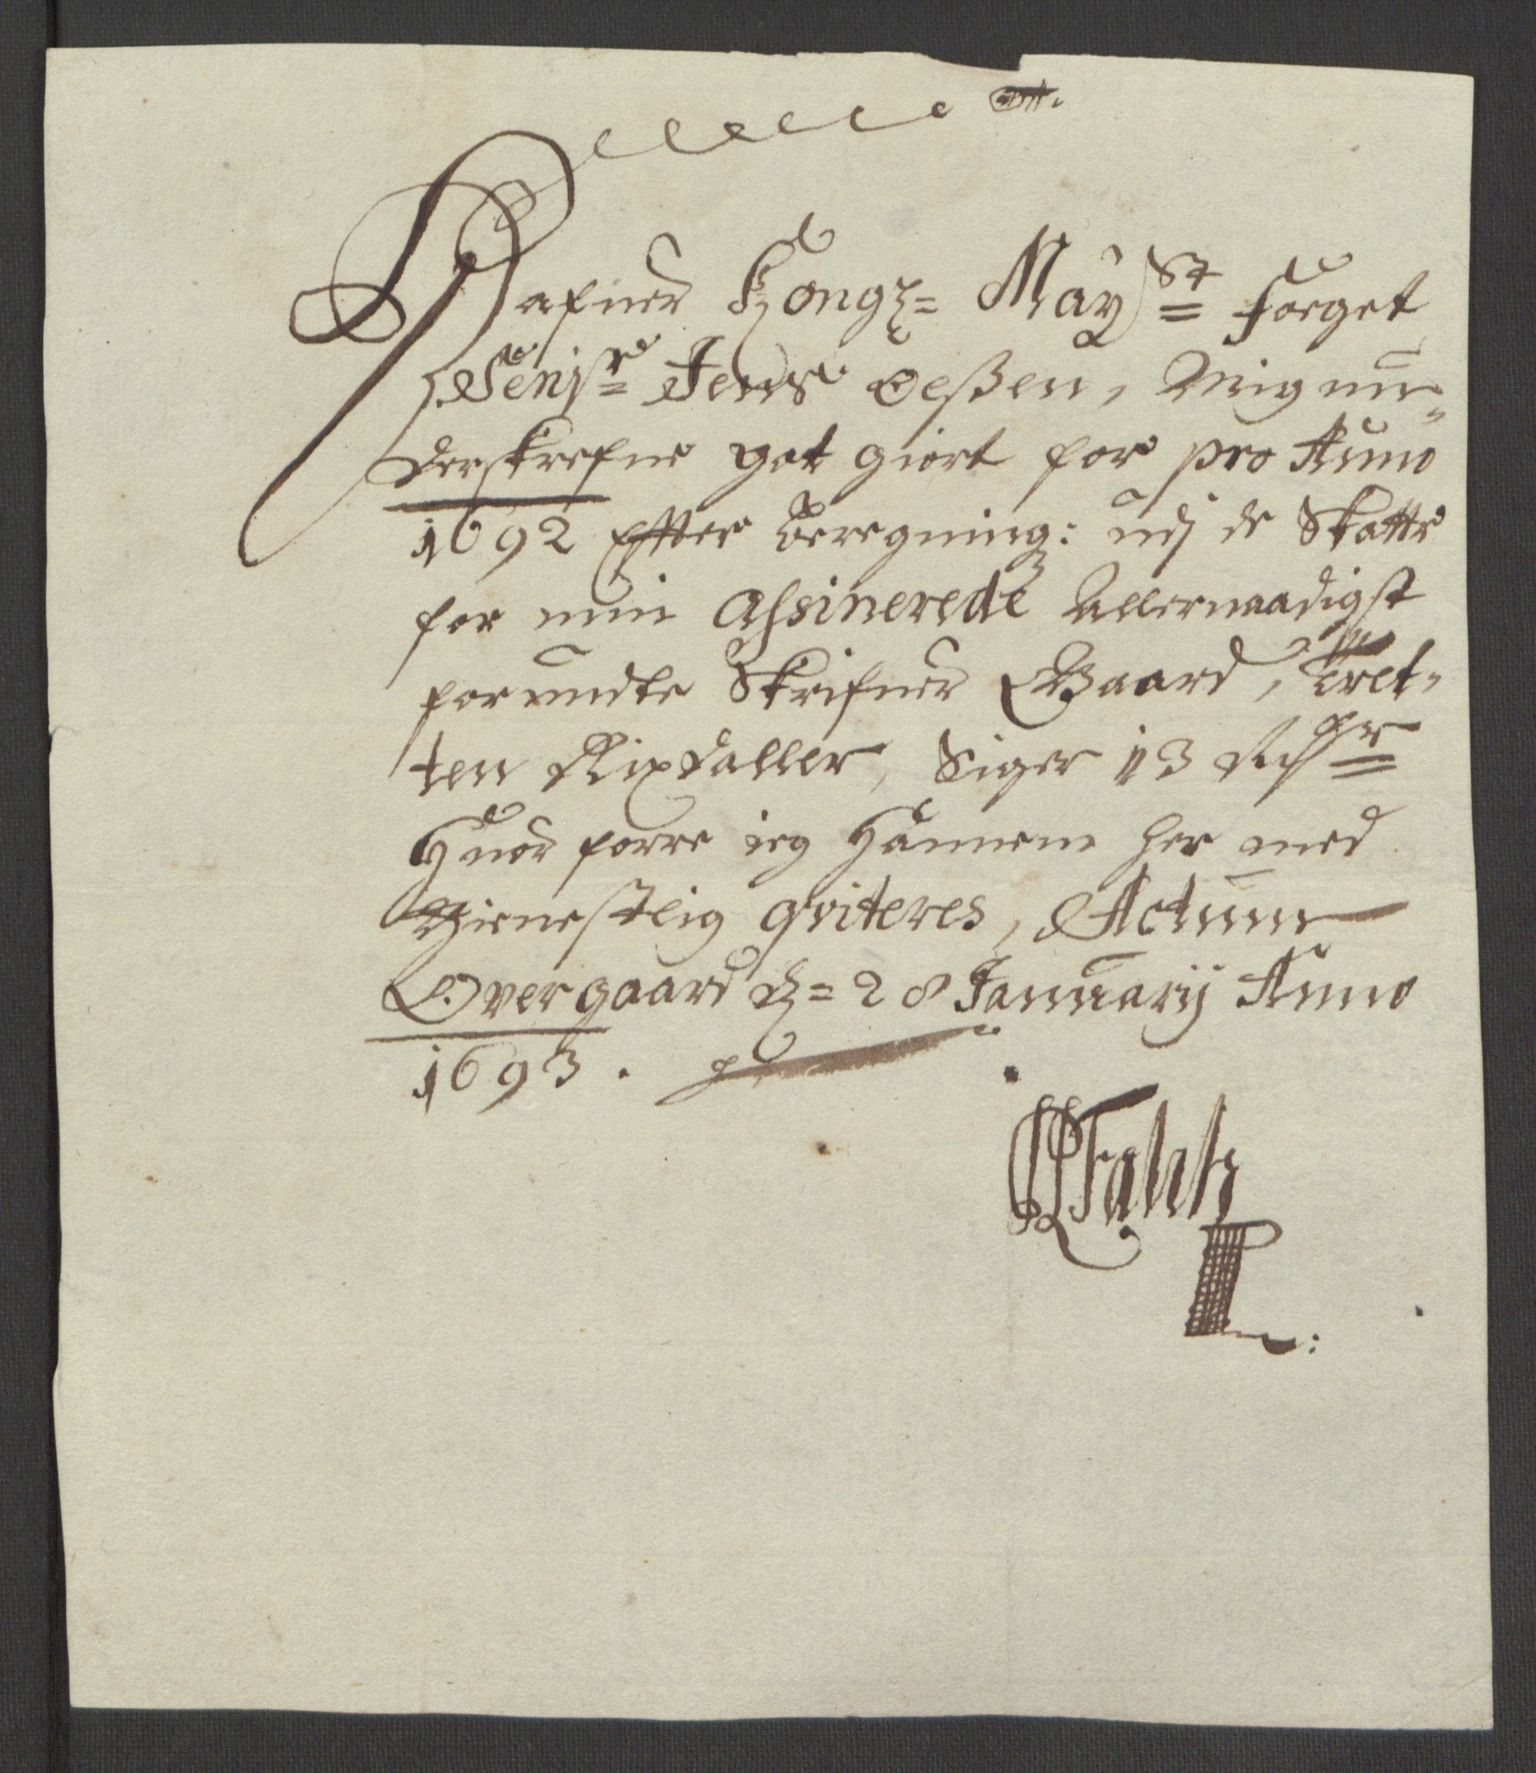 Hafuer Kongl= Mayst= Foeget
Senjr= Jens Oeßen, Mig un-
derskrefne got giort for pro Anno
1692 Efter beregning: udj de Skatte
for min Assinerede Allernaadigst
forundte Skrifuer Gaard, Tret-
ten Rixdaller, Siger 13 Rdhr=
Huor forre ieg Hannem her med
thienestlig qviteres, Actum
Overgaard d= 28 Januarij Anno
1693.